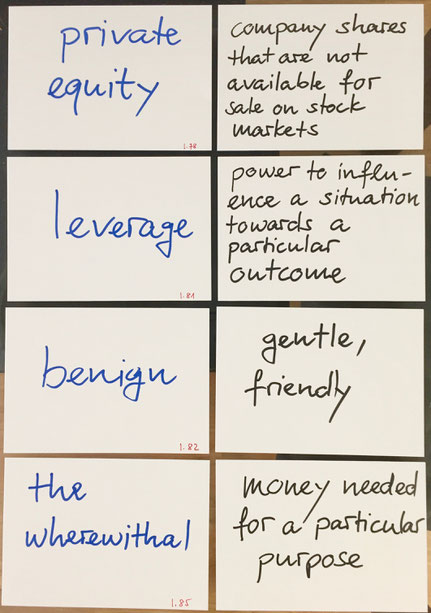 private
equity
1.78
company shares
that are not
available for
sale on stock
markets
leverage
1.81
power to influ-
ence a situation
towards a
particular
outcome
benign
1.82
gentle,
friendly
the
wherewithal
1.85
money needed
for a particular
purpose